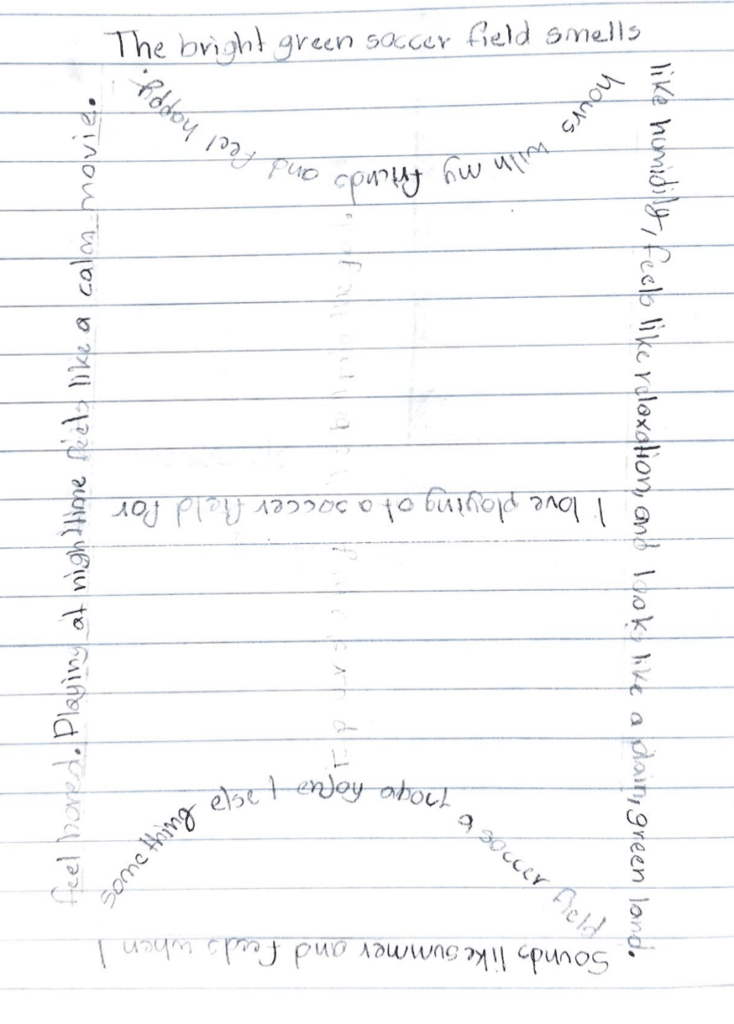 The bright green soccer field smells
like humidity, feels like relaxation, and looks like a plain, green land.
Sounds like summer and feels when I
feel bored. Playing at nighttime feels like a calm movie.
Something else I enjoy about
a soccer field
I love playing at a soccer field for
hours with my friends and feel happy.